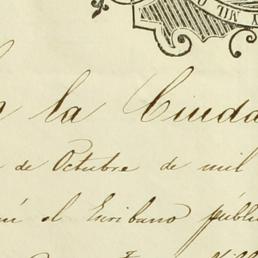 Y MIL O
n la Ciuda
de Octubre de mil
mí el Escribano públi